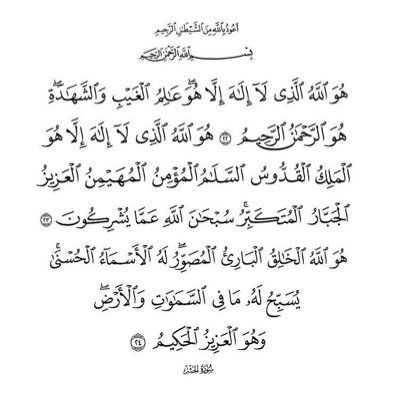 أعوذ بالله من الشيطن الرجيم
بسم الله الرحمن الرحيم
هُوَ اللَّهُ الَّذِي لَآ إِلَٰهَ إِلَّا هُوَ ۖ عَالِمُ الْغَيْبِ وَالشَّهَادَةِ ۖ
هُوَ الرَّحْمَٰنُ الرَّحِيمُ ٢٢ هُوَ اللَّهُ الَّذِي لَآ إِلَٰهَ إِلَّا هُوَ
الْمَلِكُ الْقُدُّوسُ السَّلَامُ الْمُؤْمِنُ الْمُهَيْمِنُ الْعَزِيزُ
الْجَبَّارُ الْمُتَكَبِّرُ ۚ سُبْحَانَ اللَّهِ عَمَّا يُشْرِكُونَ ٢٣
هُوَ اللَّهُ الْخَالِقُ الْبَارِئُ الْمُصَوِّرُ ۖ لَهُ الْأَسْمَآءُ الْحُسْنَىٰ ۚ
يُسَبِّحُ لَهُۥ مَا فِي السَّمَٰوَاتِ وَالْأَرْضِ ۖ
وَهُوَ الْعَزِيزُ الْحَكِيمُ ٢٤
سُورَةُ الحَشْر